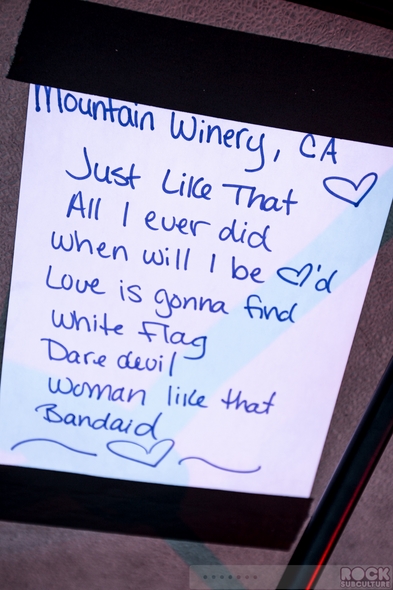 Mountain Winery, CA
Just Like That
All I ever did
when will I be ♡'d
Love is gonna find
White Flag
Dare devil
Woman like that
Bandaid
ROCK
SUBCULTURE